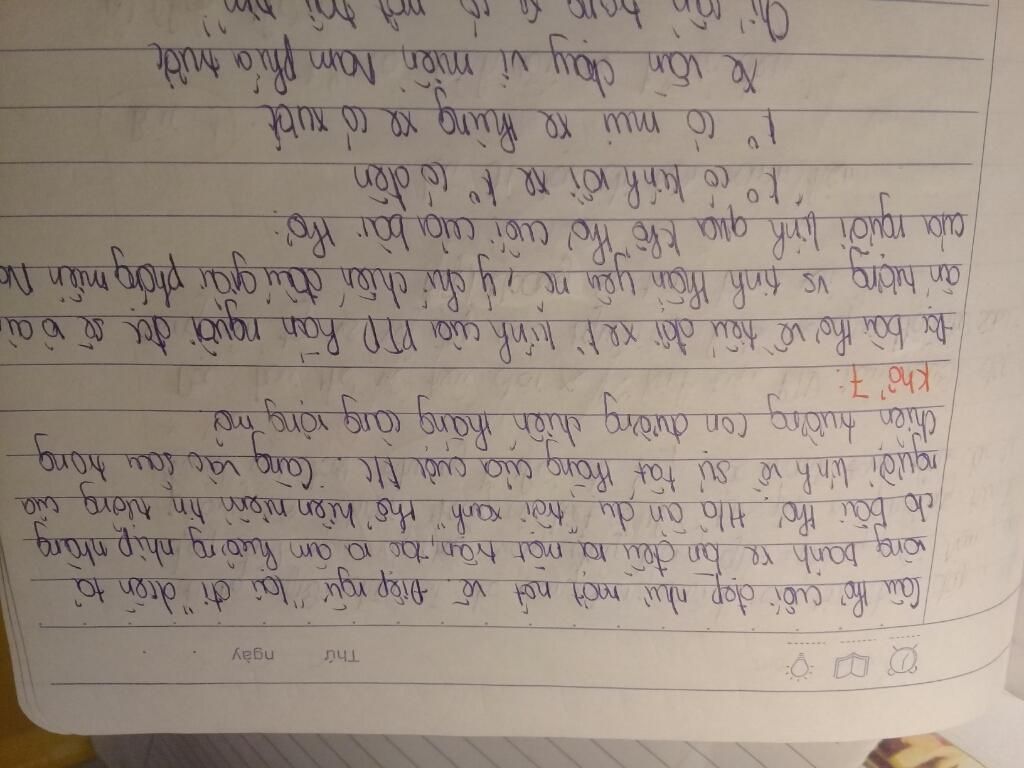 Thứ ngày
Câu thơ cuối đẹp như một nét vẽ. Điệp ngữ "lại đi" diễn tả
vòng bánh xe lăn đều ra mặt trận, tạo ra âm hưởng nhịp nhàng
cho bài thơ. H/a ẩn dụ "trời xanh" thể hiện niềm tin tưởng của
người lính về sự tất thắng của cuối k/c. Càng vào sâu trong
chiến trường con đường chiến thắng càng rộng mở.
Khổ 7:
bài thơ về tiểu đội xe k° kính của PTD hẳn người đọc sẽ
ấn tượng vs tinh thần yêu nc, ý chí chiến đấu giải phóng miền
của người lính qua khổ thơ cuối của bài thơ:
k° có kính rồi xe k° có đèn
k° có mui xe thùng xe có xướt
Xe vẫn chạy vì miền Nam phía trước
Chỉ cần trong xe có một trái tim